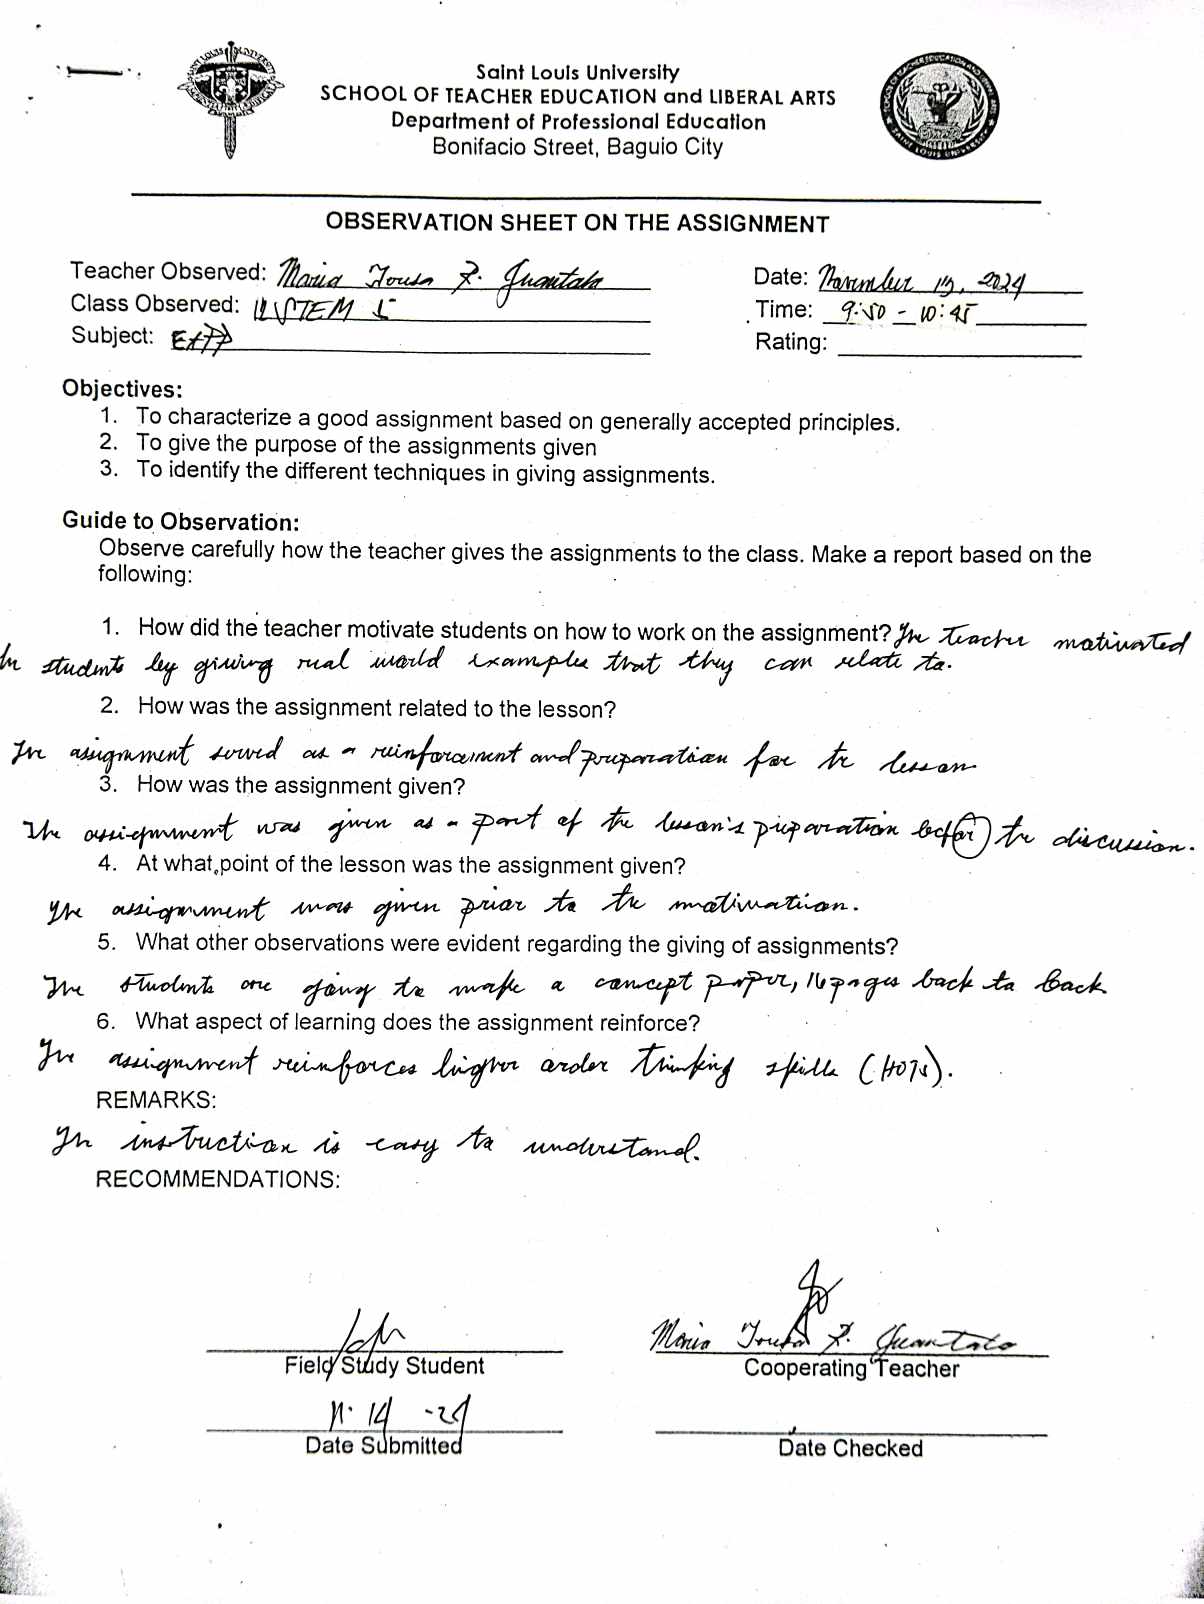 Saint Louis University
SCHOOL OF TEACHER EDUCATION and LIBERAL ARTS
Department of Professional Education
Bonifacio Street, Baguio City
OBSERVATION SHEET ON THE ASSIGNMENT
Teacher Observed: Maria F.
Date: November 14, 2024
Class Observed: 12 STEM 5
Time: 9:50 - 10:45
Subject:
Rating:
Objectives:
1. To characterize a good assignment based on generally accepted principles.
2. To give the purpose of the assignments given
3. To identify the different techniques in giving assignments.
Guide to Observation:
Observe carefully how the teacher gives the assignments to the class. Make a report based on the
following:
1. How did the teacher motivate students on how to work on the assignment? The teacher motivated
the students by giving real world examples that they can relate to.
2. How was the assignment related to the lesson?
The assignment served as a reinforcement and preparation for the lesson
3. How was the assignment given?
The assignment was given as a part of the lesson's preparation before the discussion.
4. At what point of the lesson was the assignment given?
The assignment was given prior to the motivation.
5. What other observations were evident regarding the giving of assignments?
The students are going to make a concept paper, 16 pages back to back
6. What aspect of learning does the assignment reinforce?
The assignment reinforces higher order thinking skills (HOTs).
REMARKS:
The instruction is easy to understand.
RECOMMENDATIONS:
Maria F.
Field Study Student
Cooperating Teacher
11-14-24
Date Submitted
Date Checked